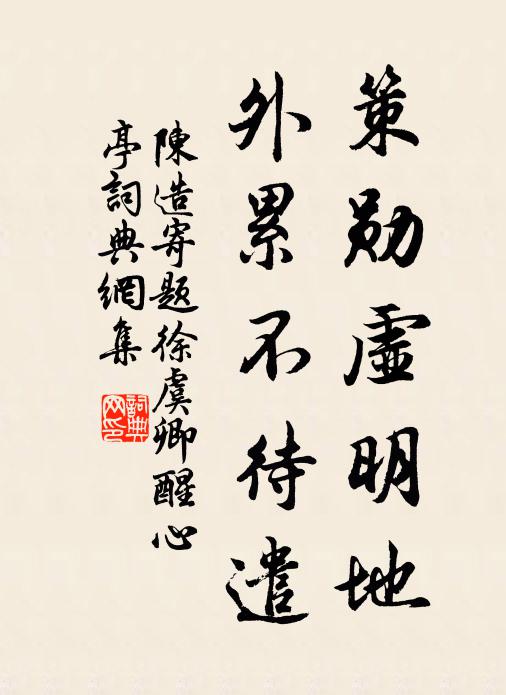 策勋虛明地
外累不待遣
陳造寄题徐虞卿醒心
亭詞典網集
詞典
网印